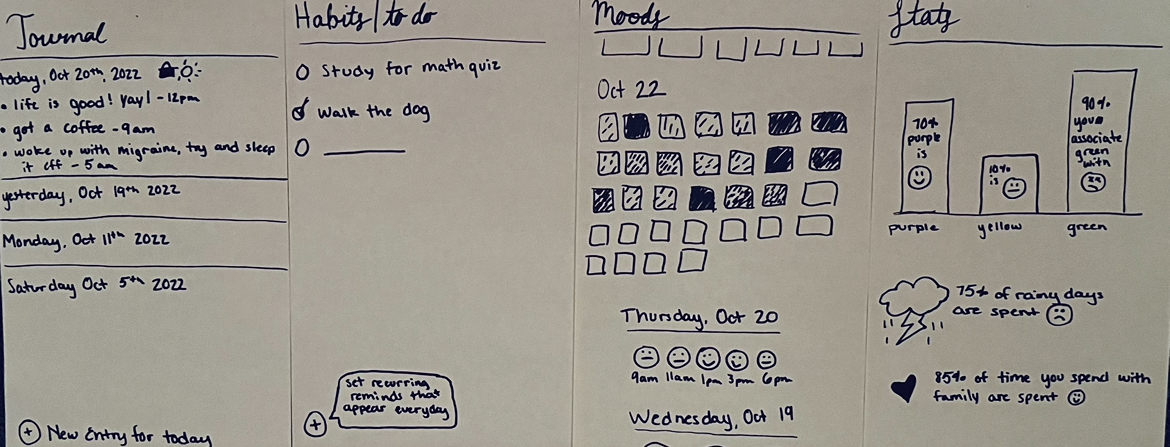 Journal
today, Oct 20th, 2022
• life is good! yay! - 12pm
• got a coffee - 9am
• woke up with migraine, try and sleep
it off - 5am
yesterday, Oct 19th 2022
Monday, Oct 11th 2022
Saturday Oct 5th 2022
+ New Entry for today
Habits/to do
Study for math quiz
Walk the dog
set recurring
reminds that
appear everyday
+
Moods
Oct 22
Thursday, Oct 20
9am 11am 1pm 3pm 6pm
Wednesday, Oct 19
Stats
70%
purple
is
10%
is
90%
you
associate
green
with
purple yellow green
75% of rainy days
are spent
85% of time you spend with
family are spent